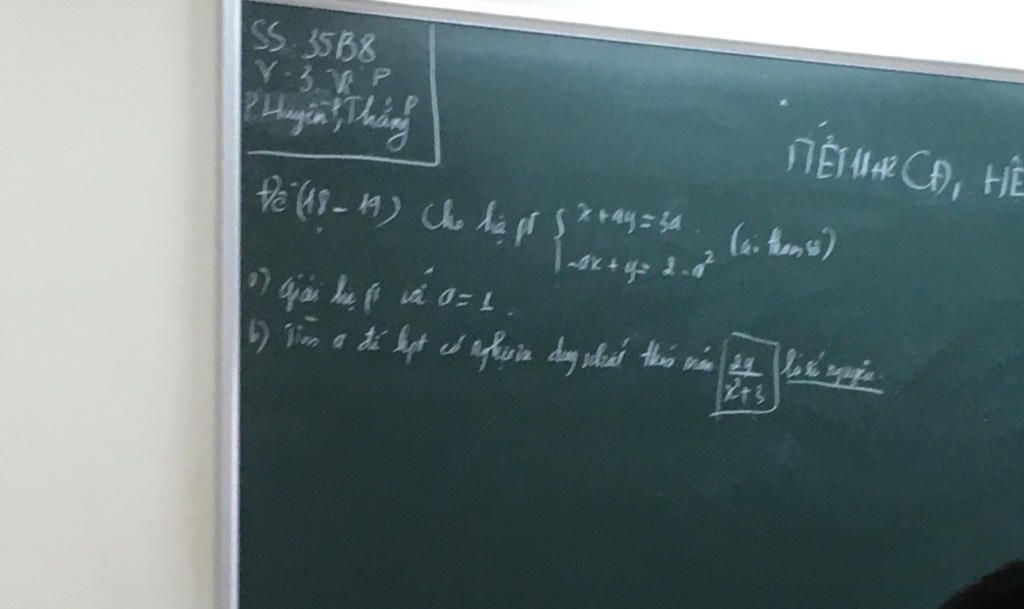 SS: 35B8
V: 3 P
Huyền, Thắng
TIẾT CĐ, HỆ
Đề (18-19) Cho hệ pt { x + ay = 3a
-ax + y = 2 - a² (a: tham số)
a) Giải hệ pt với a = 1.
b) Tìm a để hpt có nghiệm duy nhất thoả mãn 2y/(x²+3) là số nguyên.